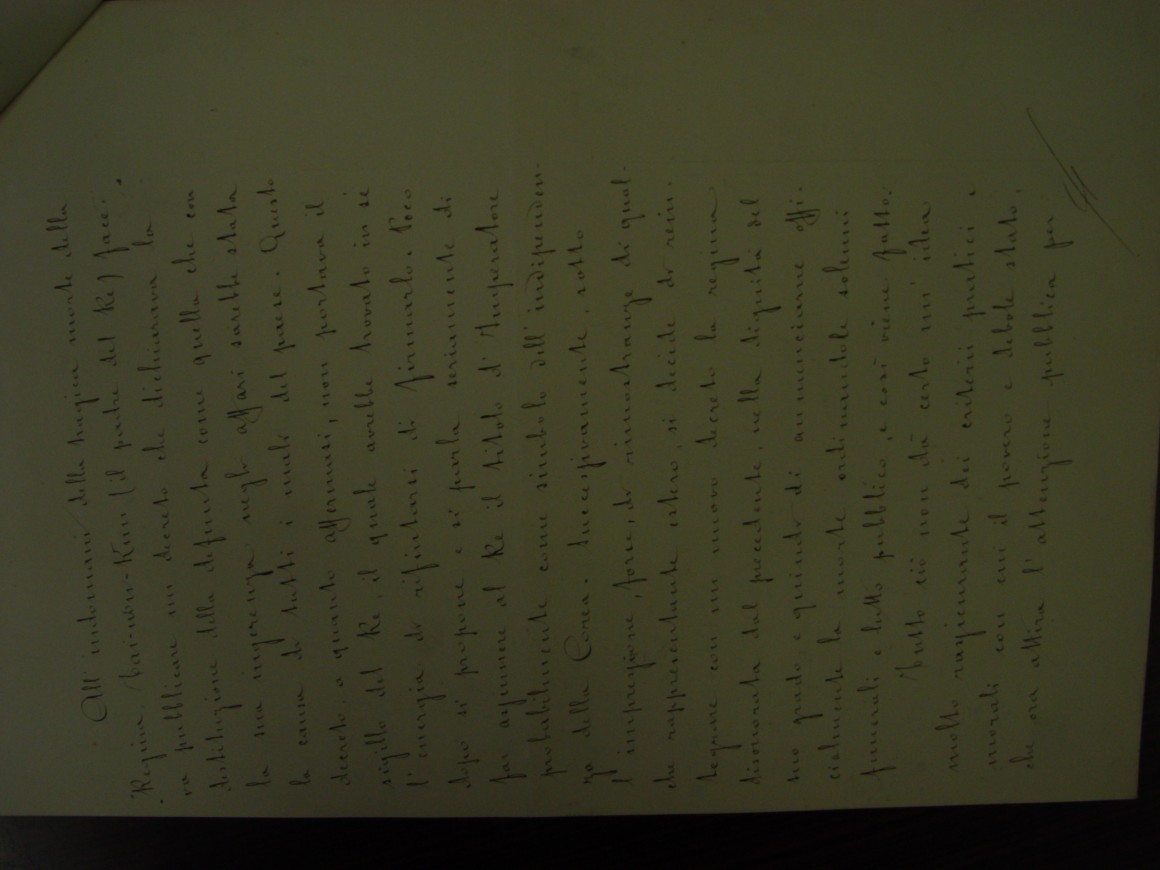 All'indomani della tragica morte della
Regina, Tai-uon-Kun (il padre del Re) face-
va pubblicare un decreto che dichiarava la
destituzione della defunta come quella che con
la sua ingerenza negli affari sarebbe stata
la causa di tutti i mali del paese. Questo
decreto, a quanto affermasi, non portava il
sigillo del Re, il quale avrebbe trovato in se
l'energia di rifiutarsi di firmarlo. Poco
dopo si propone e si parla seriamente di
far assumere al Re il titolo d'Imperatore
probabilmente come simbolo dell'indipenden-
za della Corea. Successivamente, sotto
l'impressione, forse, di rimostranze di qual-
che rappresentante estero, si decide di rein-
tegrare con un nuovo decreto la regina
disonorata dal precedente, nella dignità del
suo grado, e quindi di annunciarne uffi-
cialmente la morte ordinandole solenni
funerali e lutto pubblico, e così viene fatto.
Tutto ciò non dà certo un'idea
molto rassicurante dei criterii pratici e
morali con cui il povero e debole stato,
che ora attira l'attenzione pubblica per